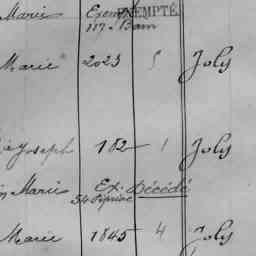 Marie Exempt EXEMPTÉ
117 - Bam
Marie 2023 5 Joly
Joseph 182 - 1 Joly
Marie Ex. Décédé
Marie 1845 4 Joly